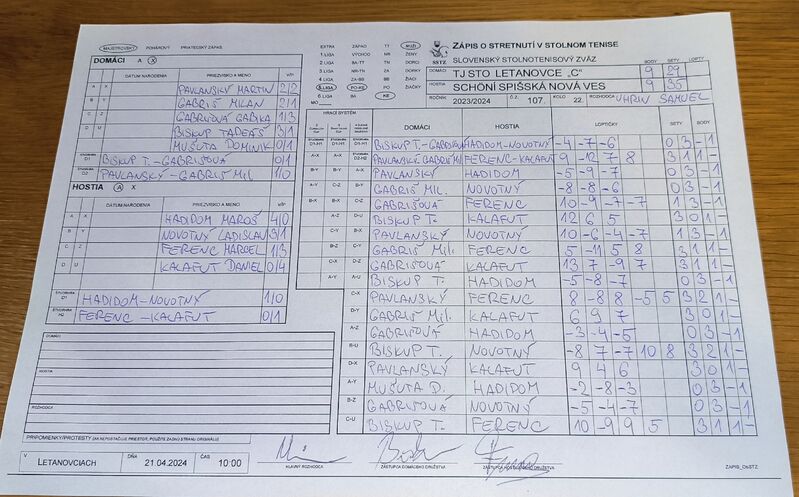 MAJSTROVSKÝ POHÁROVÝ PRIATEĽSKÝ ZÁPAS
DOMÁCI A X
DÁTUM NARODENIA PRIEZVISKO A MENO V/P
A X PAVLANSKÝ MARTIN 2/2
B Y GABRIŠ MILAN 2/1
C Z GABRIŠOVÁ GABIKA 1/3
D U BISKUP TADEÁŠ 3/1
MUŠUTA DOMINIK 0/1
ŠTVORHRA D1 BISKUP T.-GABRIŠOVÁ 0/1
ŠTVORHRA D2 PAVLANSKÝ-GABRIŠ MIL. 1/0
HOSTIA A X
DÁTUM NARODENIA PRIEZVISKO A MENO V/P
A X HADIDOM MAROŠ 4/0
B Y NOVOTNÝ LADISLAV 3/1
C Z FERENC MARCEL 1/3
D U KALAFUT DANIEL 0/4
ŠTVORHRA H1 HADIDOM-NOVOTNÝ 1/0
ŠTVORHRA H2 FERENC-KALAFUT 0/1
DOMÁCI
HOSTIA
ROZHODCA
PRIPOMIENKY/PROTESTY (AK NEPOSTAČUJE PRIESTOR, POUŽITE ZADNÚ STRANU ORIGINÁLU)
V LETANOVCIACH DŇA 21.04.2024 ČAS 10:00
HLAVNÝ ROZHODCA ZÁSTUPCA DOMÁCEHO DRUŽSTVA ZÁSTUPCA HOSŤUJÚCEHO DRUŽSTVA
ZÁPIS_OsSTZ
EXTRA ZÁPAD TT MUŽI
1.LIGA VÝCHOD NR ŽENY
2.LIGA BA-TT TN DORCI
3.LIGA NR-TN ZA DORKY
4.LIGA ZA-BB BB ŽIACI
5.LIGA PO-KE PO ŽIAČKY
6.LIGA BA KE
MO
SSTZ
ZÁPIS O STRETNUTÍ V STOLNOM TENISE
SLOVENSKÝ STOLNOTENISOVÝ ZVÄZ BODY SETY LOPTY
DOMÁCI TJ STO LETANOVCE „C“ 9 29
HOSTIA SCHÖNI SPIŠSKÁ NOVÁ VES 9 35
ROČNÍK 2023/2024 Č.Z. 107 KOLO 22 ROZHODCA UHRIN SAMUEL
HRACÍ SYSTÉM
DOMÁCI HOSTIA LOPTIČKY SETY BODY
BISKUP T.-GABRIŠOVÁ HADIDOM-NOVOTNÝ -4 -7 -6 0 3 - 1
PAVLANSKÝ GABRIŠ MIL. FERENC-KALAFUT 9 -12 7 8 3 1 1 -
PAVLANSKÝ HADIDOM -5 -9 -7 0 3 - 1
GABRIŠ MIL. NOVOTNÝ -8 -8 -6 0 3 - 1
GABRIŠOVÁ FERENC 10 -9 -7 -7 1 3 - 1
BISKUP T. KALAFUT 12 6 5 3 0 1 -
PAVLANSKÝ NOVOTNÝ 10 -6 -4 -7 1 3 - 1
GABRIŠ MIL. FERENC 5 -11 5 8 3 1 1 -
GABRIŠOVÁ KALAFUT 13 7 -9 7 3 1 1 -
BISKUP T. HADIDOM -5 -8 -7 0 3 - 1
C-X PAVLANSKÝ FERENC 8 -8 8 -5 5 3 2 1 -
D-Y GABRIŠ MIL. KALAFUT 6 9 7 3 0 1 -
A-Z GABRIŠOVÁ HADIDOM -3 -4 -5 0 3 - 1
B-U BISKUP T. NOVOTNÝ -8 7 -7 10 8 3 2 1 -
D-X PAVLANSKÝ KALAFUT 9 4 6 3 0 1 -
A-Y MUŠUTA D. HADIDOM -2 -8 -3 0 3 - 1
B-Z GABRIŠOVÁ NOVOTNÝ -5 -4 -7 0 3 - 1
C-U BISKUP T. FERENC 10 -9 9 5 3 1 1 -